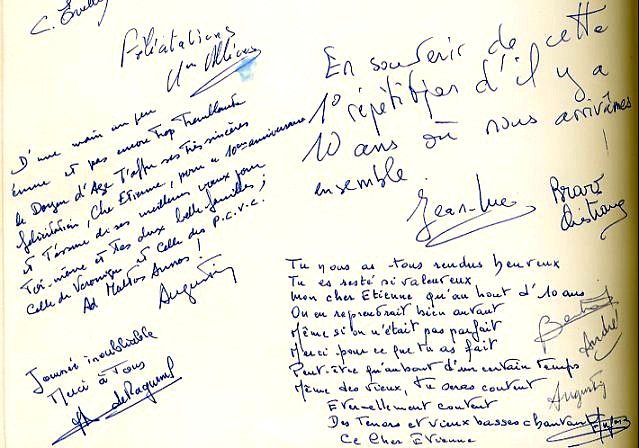 Félicitations
D'une main un peu
émue et pas encore trop tremblante
le Doyen d'Age t'offre ses très sincères
félicitations, Cher Etienne, pour ce 10ème anniversaire
et t'assure de ses meilleurs vœux pour
Toi-même et tes deux belles familles ;
Celle de Véronique et celle des P.C.V.C.
Ad Multos Annos !
Augustin
Journée inoubliable
Merci à Tous
En souvenir de cette
1° répétition d'il y a
10 ans où nous arrivâmes
ensemble.
Jean-Luc
Bravo
Tu nous as tous rendus heureux
Tu es resté si valeureux
Mon cher Etienne qu'au bout d'10 ans
On en reprendrait bien autant
Même si on n'était pas parfait
Merci pour ce que tu as fait
Peut-être qu'au bout d'un certain temps
Même des vieux, tu seras content
Eternellement content
Des Tenors et vieux basses chantant
Ce Cher Etienne
André
Augustin